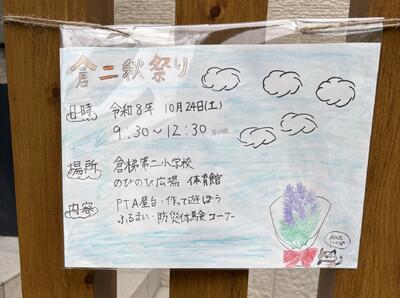 倉二秋祭り
日時 令和8年 10月24日(土)
9:30~12:30
場所 倉梯第二小学校
のびのび広場 体育館
内容 PTA屋台・作って遊ぼう
ふるまい・防災体験コーナー